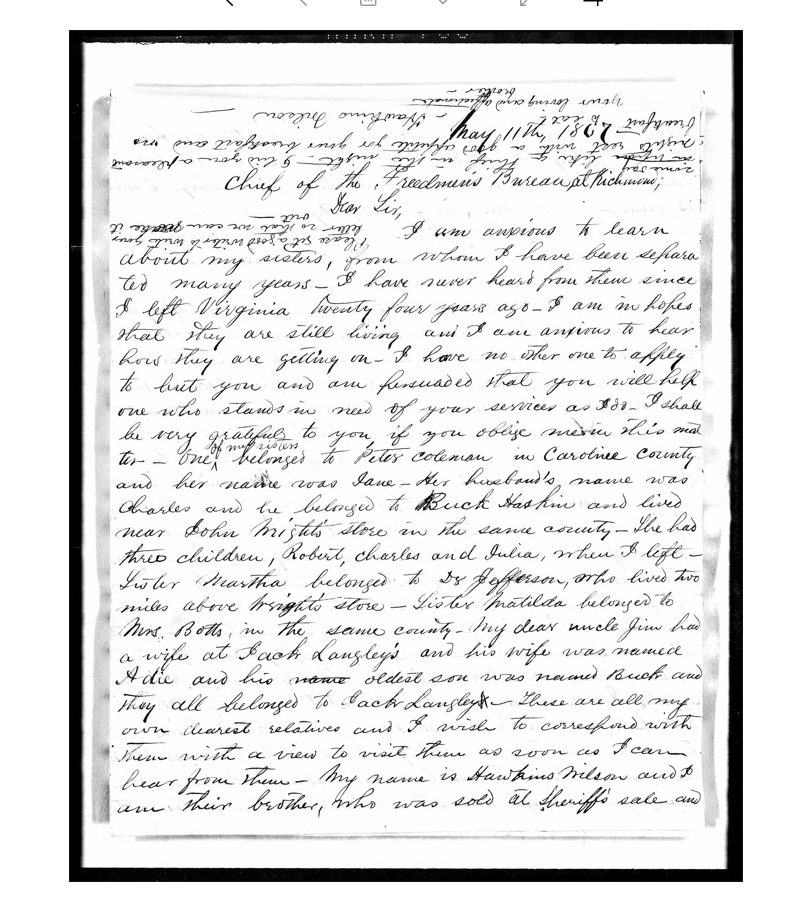 May 11th, 1867
Chief of the Freedmen's Bureau at Richmond;
Dear Sir,
I am anxious to learn
about my sisters, from whom I have been separa
ted many years – I have never heard from them since
I left Virginia twenty four years ago – I am in hopes
that they are still living and I am anxious to hear
how they are getting on – I have no other one to apply
to but you and am persuaded that you will help
one who stands in need of your services as I do – I shall
be very grateful to you if you oblige me in this mat
ter – One of my sisters belonged to Peter Coleman in Caroline County
and her name was Jane – Her husband's name was
Charles and he belonged to Buck Haskin and lived
near John Wright's store in the same county – She had
three children, Robert, Charles and Julia, when I left –
Sister Martha belonged to Dr Jefferson, who lived two
miles above Wright's store – Sister Matilda belonged to
Mrs. Botts, in the same county – My dear uncle Jim had
a wife at Jack Langley's and his wife was named
Adie and his name oldest son was named Buck and
they all belonged to Jack Langley – These are all my
own dearest relatives and I wish to correspond with
them with a view to visit them as soon as I can
hear from them – My name is Hawkins Wilson and I
am their brother, who was sold at Sheriff's sale and
Please get a good writer to write your
letter so that we can it
out –
in the night – I bid you a pleasant
night's rest with a good appetite for your breakfast and no
breakfast to eat –
Your loving and affectionate
brother –
Hawkins Wilson –